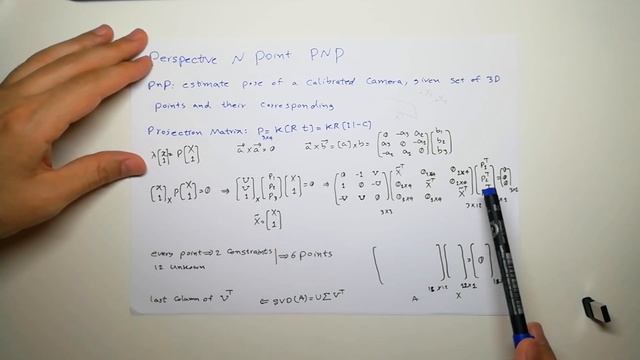 Perspective N Point PNP
PnP: estimate pose of a calibrated camera, given set of 3D
points and their corresponding
Projection Matrix: P = K[R t] = KR[I|-C]
3x4
λ[x 1] = P[X 1] a × a = 0 a × b = [a]× b = [0 -a3 a2 a3 0 -a1 -a2 a1 0][b1 b2 b3]
[x 1]× P[X 1] = 0 ⇒ [u v 1]× [P1 P2 P3][X 1] = 0 ⇒ [0 -1 v 1 0 -u -v u 0][X̃ᵀ 0 1x4 0 1x4 0 1x4 X̃ᵀ 0 1x4 0 1x4 0 1x4 X̃ᵀ][P1ᵀ P2ᵀ] = [0 0 0]
3x3 3x12
X̃ = [X 1]
every point ⇒ 2 constraints | ⇒ 6 points [ ][ ] = [0]
12 unknown
12x12 12x1
last column of Vᵀ ⇐ SVD(A) = UΣVᵀ A X